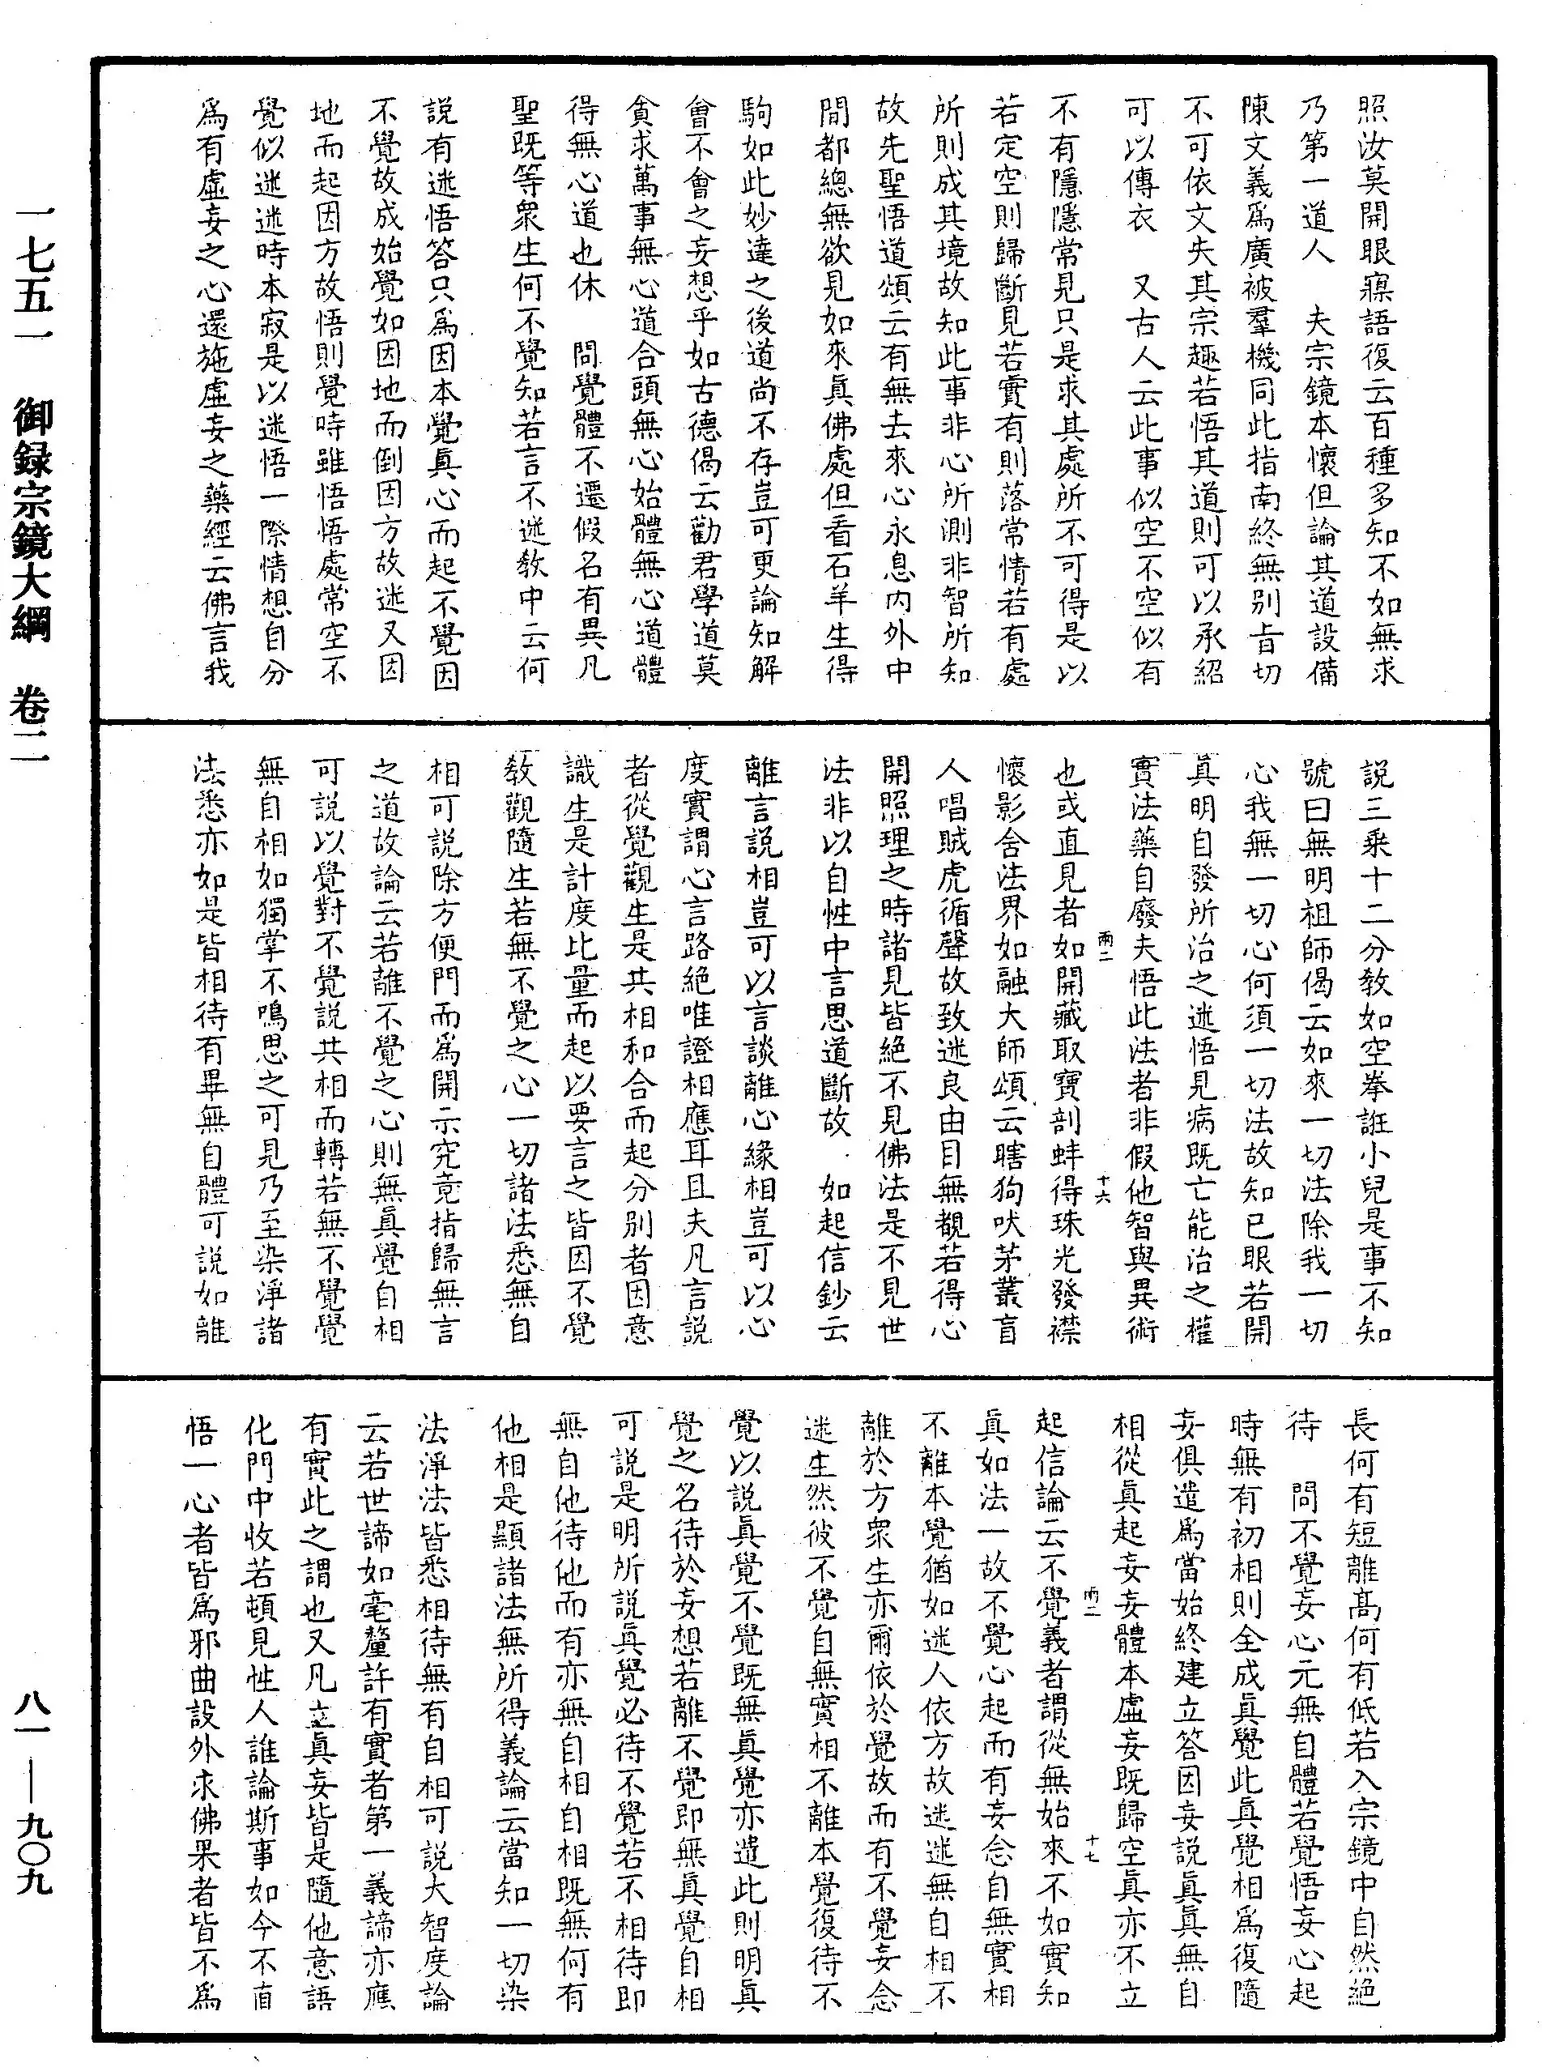 照汝莫開眼寱語復云百種多知不如無求
乃第一道人　夫宗鏡本懷但論其道設備
陳文義爲廣被羣機同此指南終無別旨切
不可依文失其宗趣若悟其道則可以承紹
可以傳衣　又古人云此事似空不空似有
不有隱隱常見只是求其處所不可得是以
若定空則歸斷見若實有則落常情若有處
所則成其境故知此事非心所測非智所知
故先聖悟道頌云有無去來心永息内外中
間都總無欲見如來眞佛處但看石羊生得
駒如此妙達之後道尚不存豈可更論知解
會不會之妄想乎如古德偈云勸君學道莫
貪求萬事無心道合頭無心始體無心道體
得無心道也休　問覺體不遷假名有異凡
聖既等衆生何不覺知若言不迷教中云何
説有迷悟答只爲因本覺眞心而起不覺因
不覺故成始覺如因地而倒因方故迷又因
地而起因方故悟則覺時雖悟悟處常空不
覺似迷迷時本寂是以迷悟一際情想自分
爲有虛妄之心還施虛妄之藥經云佛言我
説三乘十二分教如空拳誑小兒是事不知
號曰無明祖師偈云如來一切法除我一切
心我無一切心何須一切法故知已眼若開
眞明自發所治之迷悟見病既亡能治之權
實法藥自廢夫悟此法者非假他智與異術
也或直見者如開藏取寶剖蚌得珠光發襟
兩二
十六
懷影含法界如融大師頌云瞎狗吠茅叢盲
人唱賊虎循聲故致迷良由目無覩若得心
開照理之時諸見皆絕不見佛法是不見世
法非以自性中言思道斷故．如起信鈔云
離言説相豈可以言談離心緣相豈可以心
度實謂心言路絕唯證相應耳且夫凡言説
者從覺觀生是共相和合而起分別者因意
識生是計度比量而起以要言之皆因不覺
教觀隨生若無不覺之心一切諸法悉無自
相可説除方便門而爲開示究竟指歸無言
之道故論云若離不覺之心則無眞覺自相
可説以覺對不覺説共相而轉若無不覺覺
無自相如獨掌不鳴思之可見乃至染淨諸
法悉亦如是皆相待有畢無自體可説如離
長何有短離髙何有低若入宗鏡中自然絕
待　問不覺妄心元無自體若覺悟妄心起
時無有初相則全成眞覺此眞覺相爲復隨
妄俱遣爲當始終建立答因妄説眞眞無自
相從眞起妄妄體本虛妄既歸空眞亦不立
起信論云不覺義者謂從無始來不如實知
兩二
十七
眞如法一故不覺心起而有妄念自無實相
不離本覺猶如迷人依方故迷迷無自相不
離於方衆生亦爾依於覺故而有不覺妄念
迷生然彼不覺自無實相不離本覺復待不
覺以説眞覺不覺既無眞覺亦遣此則明眞
覺之名待於妄想若離不覺即無眞覺自相
可説是明所説眞覺必待不覺若不相待即
無自他待他而有亦無自相自相既無何有
他相是顯諸法無所得義論云當知一切染
法淨法皆悉相待無有自相可説大智度論
云若世諦如毫釐許有實者第一義諦亦應
有實此之謂也又凡立眞妄皆是隨他意語
化門中收若頓見性人誰論斯事如今不直
悟一心者皆爲邪曲設外求佛果者皆不爲
一七五一　御録宗鏡大綱　卷二
八一——九〇九